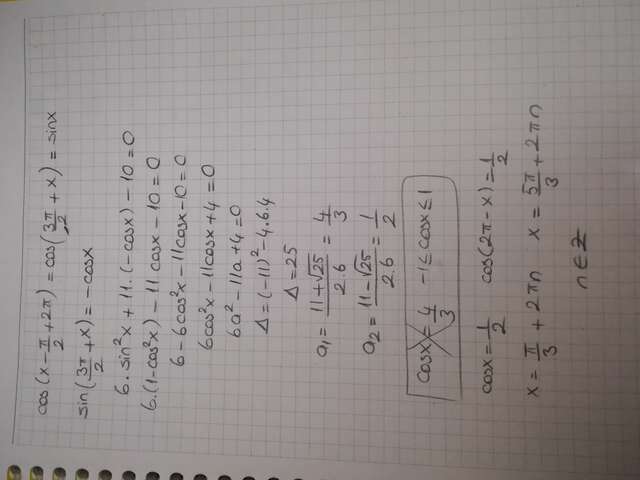 cos(x - π/2 + 2π) = cos(3π/2 + x) = sinx
sin(3π/2 + x) = -cosx
6.sin²x + 11.(-cosx) - 10 = 0
6.(1-cos²x) - 11 cosx - 10 = 0
6 - 6cos²x - 11cosx - 10 = 0
6cos²x - 11cosx + 4 = 0
6a² - 11a + 4 = 0
Δ = (-11)² - 4.6.4
Δ = 25
a₁ = (11 + √25)/(2.6) = 4/3
a₂ = (11 - √25)/(2.6) = 1/2
cosx = 4/3 -1 ≤ cosx ≤ 1
cosx = 1/2 cos(2π - x) = 1/2
x = π/3 + 2πn x = 5π/3 + 2πn
n ∈ Z